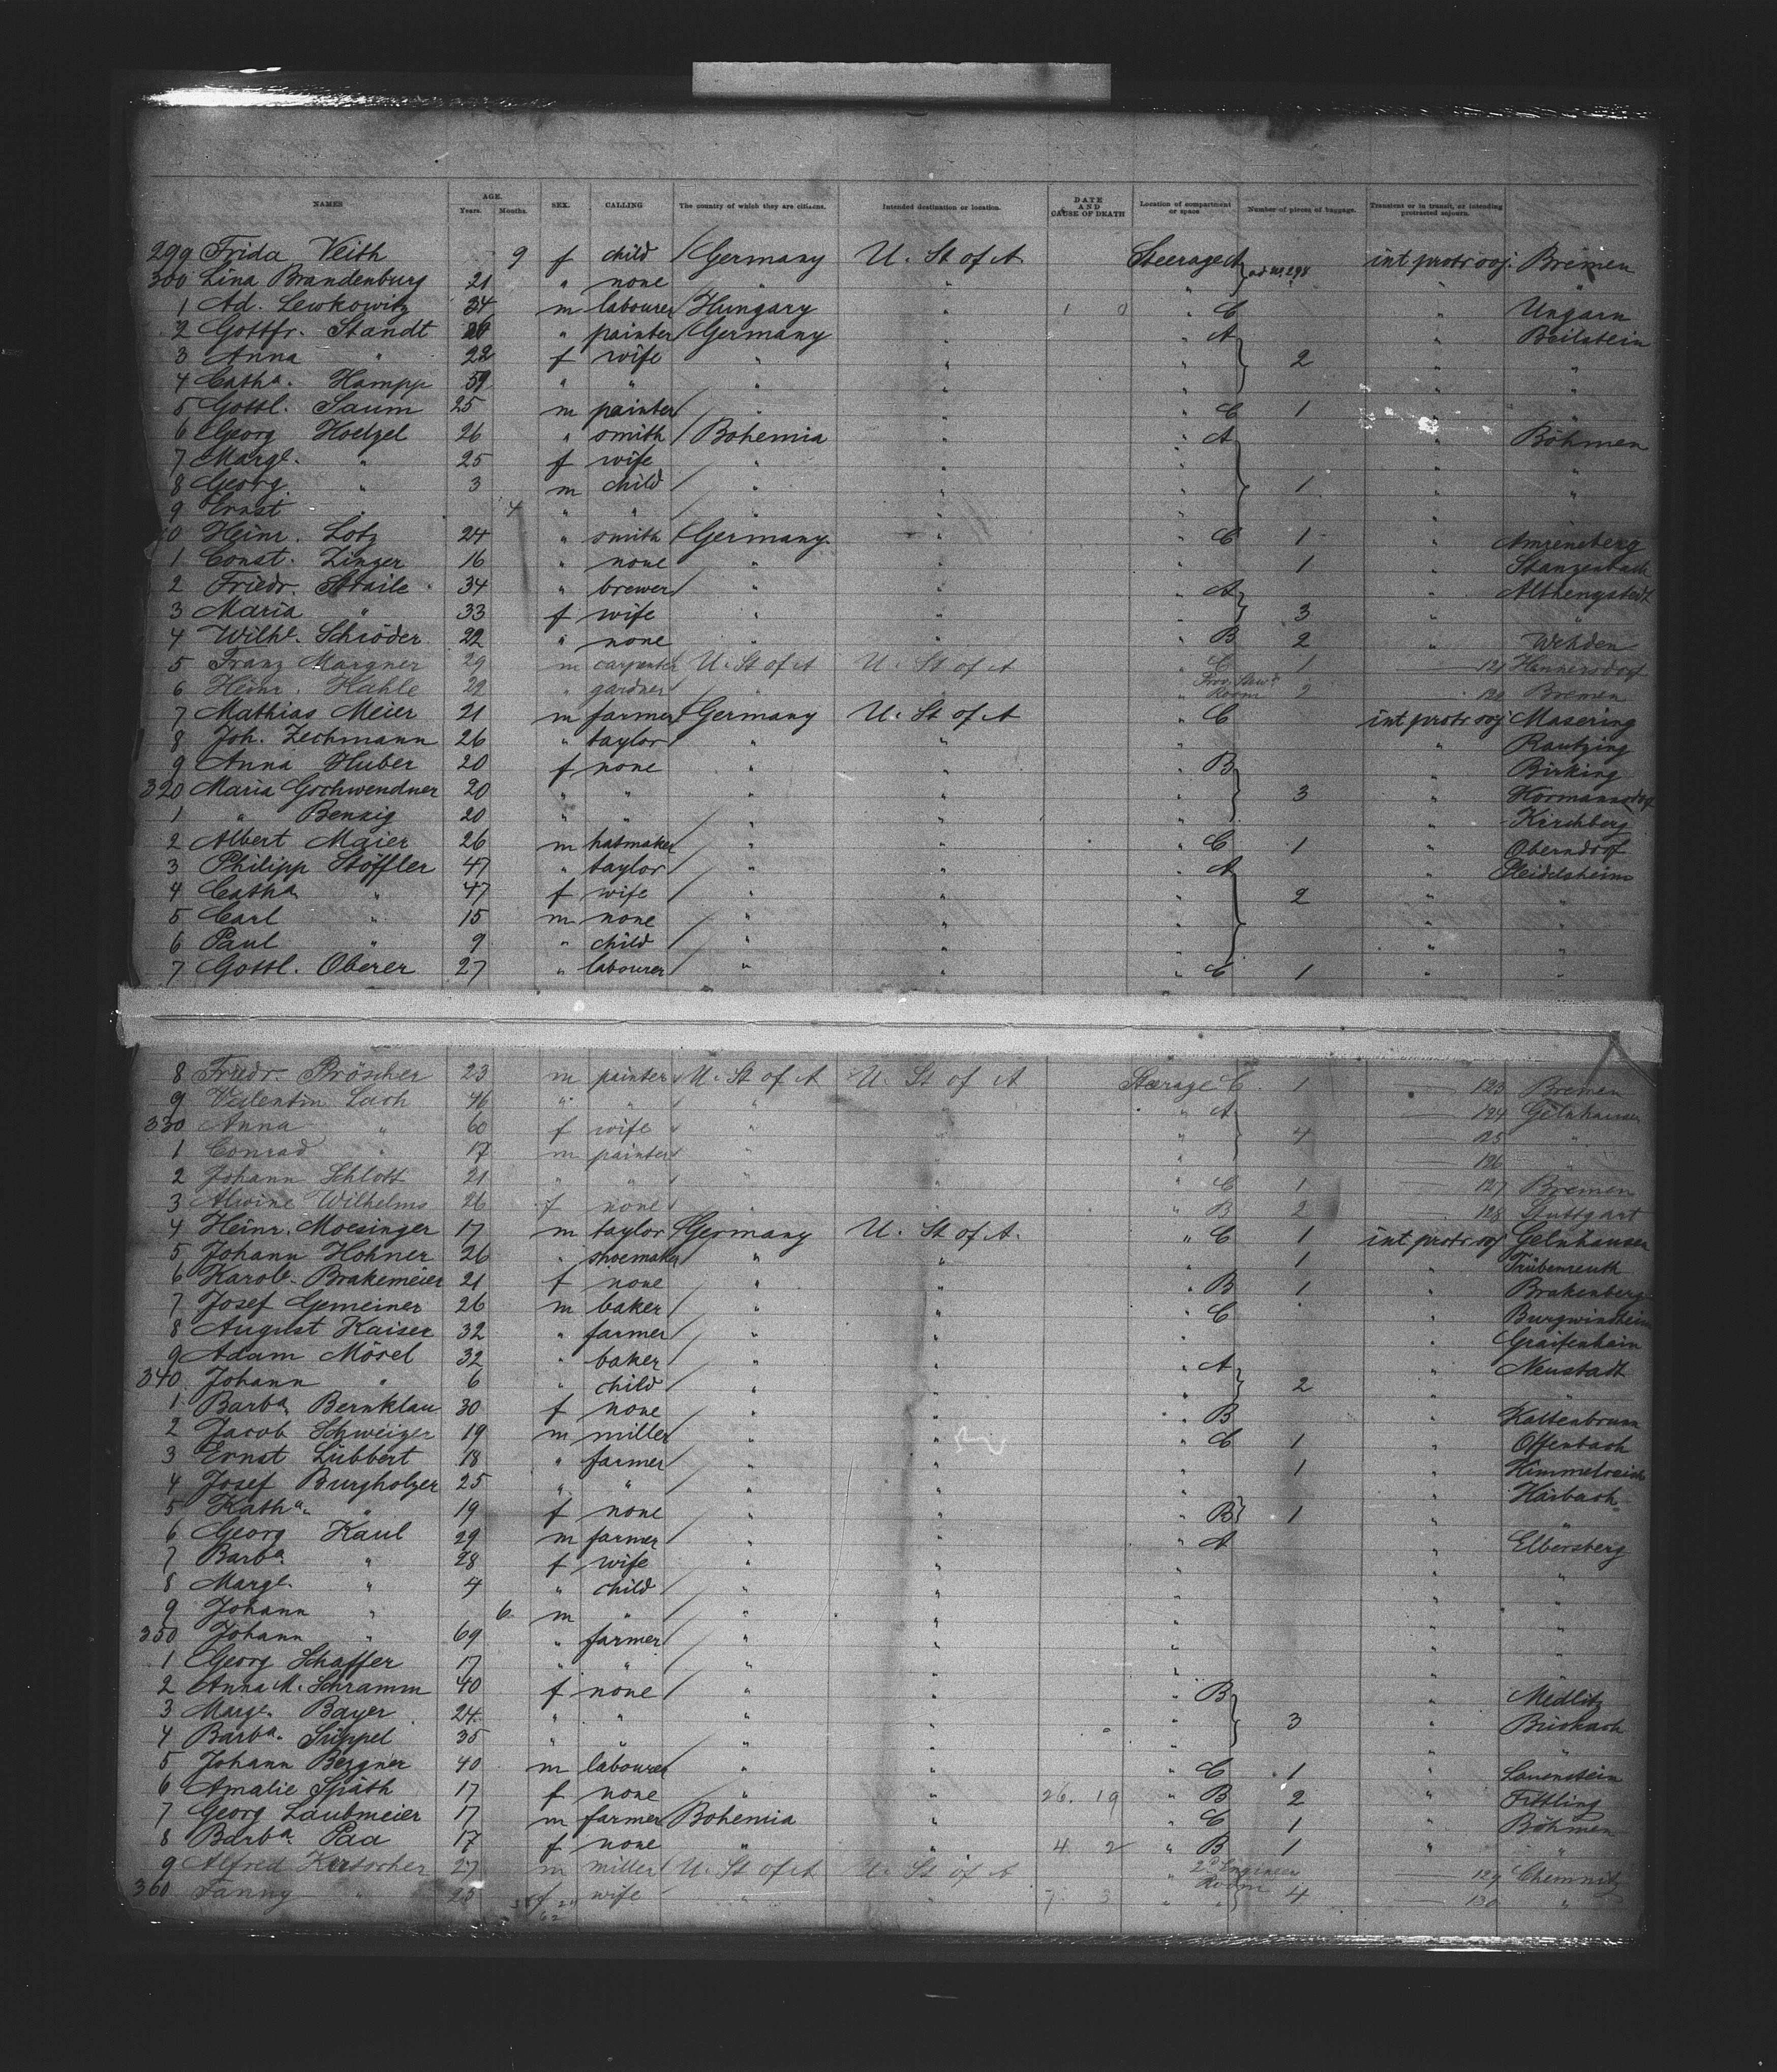 NAMES AGE. Years. Months. SEX. CALLING The country of which they are citizens. Intended destination or location. DATE AND CAUSE OF DEATH Location of compartment or space Number of pieces of baggage. Transient or in transit, or intending protracted sojourn.
299 Frida Veith 9 f child Germany U. St of A Steerage A int protr soj. Bremen
300 Lina Brandenburg 21 " none " " " " "
1 Ad. Lewkowitz 34 m labourer Hungary " " C " Ungarn
2 Gottfr. Standt painter Germany " " A " Beilstein
3 Anna " 22 f wife " " " 2 " "
4 Catha. Hampp 59 " " " " " " "
5 Gottl. Saum 25 m painter " " " C 1 " "
6 Georg Hoelzel 26 " smith Bohemia " " A " Böhmen
7 Margt. " 25 f wife " " " " "
8 Georg " 3 m child " " " 1 " "
9 Ernst " 4 " " " " " " "
10 Heinr. Lotz 24 " smith Germany " " C 1 "
1 Const. Zinger 16 " none " " " 1 "
2 Friedr. Straile 34 " brewer " " " A " Althengstedt
3 Maria " 33 f wife " " " 3 " "
4 Wilhe. Schröder 22 " none " " " B 2 " Wehden
5 Franz Margner 29 m carpenter U. St of A U. St of A " C 1 121 Hennersdorf
6 Heinr. Kahle 29 " gardner " " " Room 2 122 Bremen
7 Mathias Meier 21 m farmer Germany U. St of A " C int protr soj Masering
8 Joh. Zechmann 26 " taylor " " " " Rautzing
9 Anna Huber 20 f none " " " B " Birking
320 Maria Gschwendner 20 " " " " " 3 " Hormannsdorf
1 " Benzig 20 " " " " " " Kirchberg
2 Albert Maier 26 m hatmaker " " " C 1 " Oberndorf
3 Philipp Stöffler 47 " taylor " " " A " Heidelsheim
4 Catha " 47 f wife " " " 2 " "
5 Carl " 15 m none " " " " "
6 Paul " 9 " child " " " " "
7 Gottl. Oberer 27 " labourer " " " C 1 " "
8 Friedr. Bröscher 23 m painter U. St of A U. St of A Steerage C 1 123 Bremen
9 Valentin Lach 46 " " " " " A 124 Gelnhausen
330 Anna " 60 f wife " " " 4 125 "
1 Conrad " 17 m painter " " " 126 "
2 Johann Schlott 21 " " " " " C 1 127 Bremen
3 Alwine Wilhelms 26 f none " " " B 2 128 Stuttgart
4 Heinr. Moesinger 17 m taylor Germany U. St of A. " C 1 int protr soj Gelnhausen
5 Johann Hohner 26 " shoemaker " " " 1 " Trübenreuth
6 Karole. Brakemeier 21 f none " " " B 1 " Brakenberg
7 Josef Gemeiner 26 m baker " " " C " Burgwindheim
8 August Kaiser 32 " farmer " " " " Graifenhain
9 Adam Mösel 32 " baker " " " A " Neustadt
340 Johann " 6 " child " " " 2 " "
1 Barba. Bernklau 30 f none " " " B " Kaltenbrunn
2 Jacob Schweizer 19 m miller " " " C 1 " Offenbach
3 Ernst Lübbert 18 " farmer " " " 1 " Himmelreich
4 Josef Burgholzer 25 " " " " " " Harbach
5 Katha. " 19 f none " " " B 1 " "
6 Georg Kaul 29 m farmer " " " A " Elbersberg
7 Barba " 28 f wife " " " " "
8 Margt. " 4 " child " " " " "
9 Johann " 6 m " " " " " "
350 Johann " 69 " farmer " " " " "
1 Georg Schaffer 17 " " " " " " "
2 Anna M. Schramm 40 f none " " " B " Medlitz
3 Margt. Bayer 24 " " " " " 3 "
4 Barba. Süppel 35 " " " " " " "
5 Johann Bergner 40 m labourer " " " C 1 " Lauenstein
6 Amalie Späth 17 f none " " 26. 19 " B 2 " Tittling
7 Georg Laubmeier 17 m farmer Bohemia " " C 1 " Böhmen
8 Barba. Paa 17 f none " " 4 2 " B 1 " "
9 Alfred Kersocher 27 m miller U. St of A U. St of A " 2d Engineer 129 Chemnitz
360 Fanny " 25 f wife " " 7 3 " Room 4 130 "